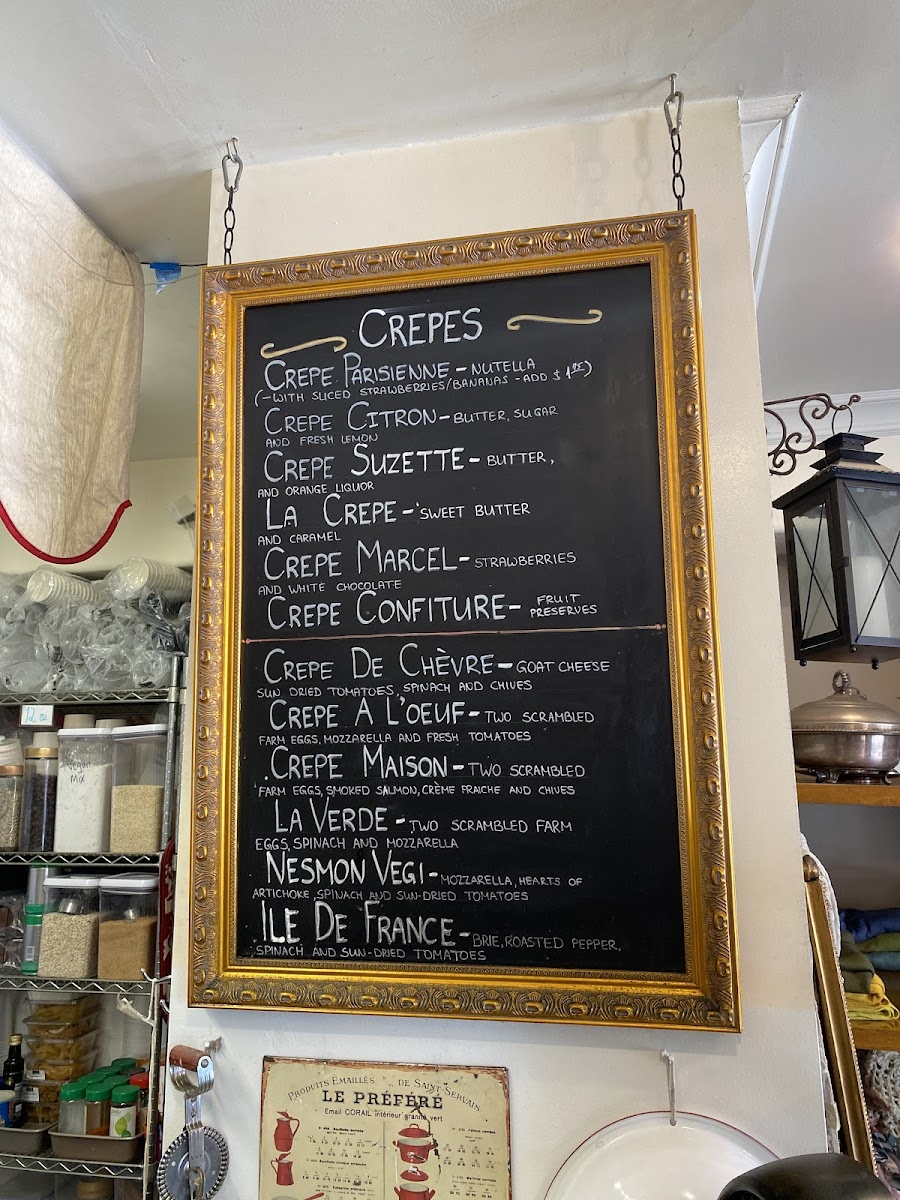 CREPES
CREPE PARISIENNE - NUTELLA
(-WITH SLICED STRAWBERRIES/BANANAS - ADD $1.95)
CREPE CITRON - BUTTER, SUGAR
AND FRESH LEMON
CREPE SUZETTE - BUTTER,
AND ORANGE LIQUOR
LA CREPE - SWEET BUTTER
AND CARAMEL
CREPE MARCEL - STRAWBERRIES
AND WHITE CHOCOLATE
CREPE CONFITURE - FRUIT
PRESERVES
CREPE DE CHÈVRE - GOAT CHEESE
SUN DRIED TOMATOES, SPINACH AND CHIVES
CREPE A L'OEUF - TWO SCRAMBLED
FARM EGGS, MOZZARELLA AND FRESH TOMATOES
CREPE MAISON - TWO SCRAMBLED
FARM EGGS, SMOKED SALMON, CRÈME FRAICHE AND CHIVES
LA VERDE - TWO SCRAMBLED FARM
EGGS, SPINACH AND MOZZARELLA
NESMON VEGI - MOZZARELLA, HEARTS OF
ARTICHOKE, SPINACH AND SUN-DRIED TOMATOES
ILE DE FRANCE - BRIE, ROASTED PEPPER,
SPINACH AND SUN-DRIED TOMATOES
12 oz
Vegan
Mix
PRODUITS ÉMAILLÉS DE SAINT-SERVAIS
LE PRÉFÉRÉ
Émail CORAIL intérieur granité vert